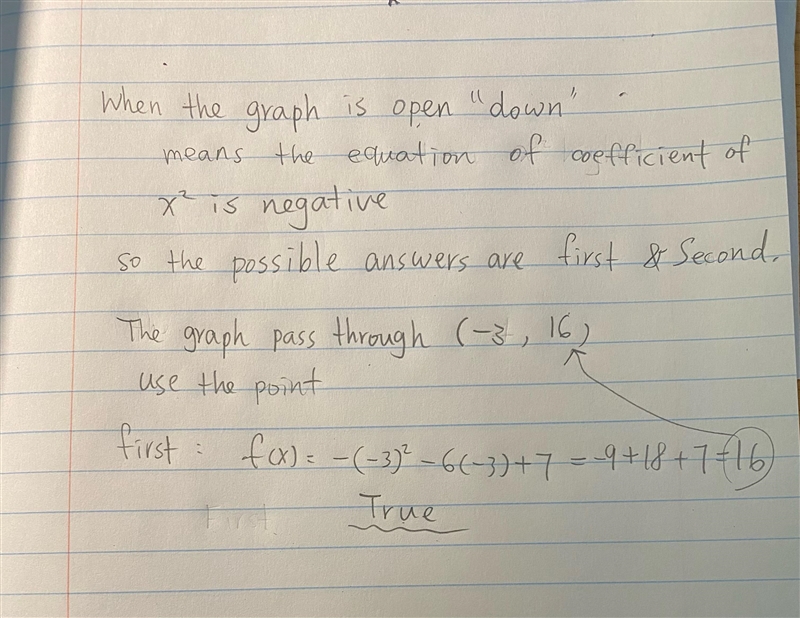 When the graph is open "down"
means the equation of coefficient of
x² is negative
so the possible answers are first & Second.
The graph pass through (-3, 16)
use the point
first: f(x) = -(-3)² - 6(-3) + 7 = -9 + 18 + 7 = 16
First
True